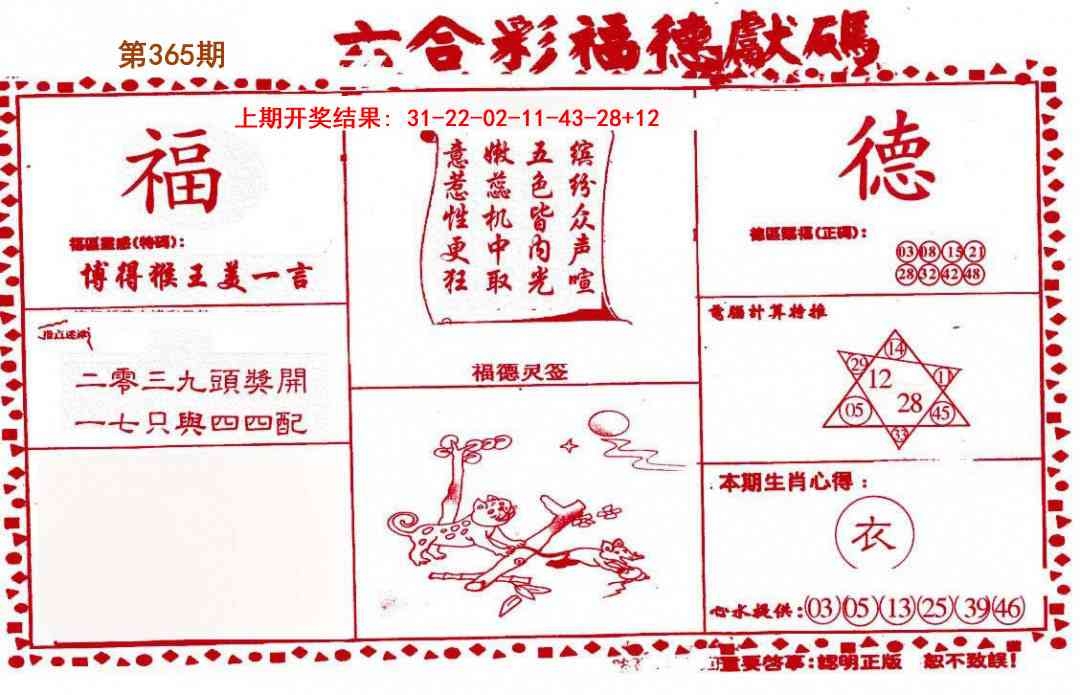 第365期
六合彩福德獻碼
上期开奖结果: 31-22-02-11-43-28+12
福
福區靈感(特碼):
博得猴王美一言
二零三九頭獎開
一七只與四四配
缤纷众声喧
五色皆内光
嫩蕊机中取
意惹性更狂
福德灵签
德
德區賜福(正碼):
03 08 15 21
28 32 42 48
電腦計算特推
14
29
12
28
05
45
33
本期生肖心得:
衣
心水提供:03 05 13 25 39 46
重要啓事:認明正版 恕不致誤!